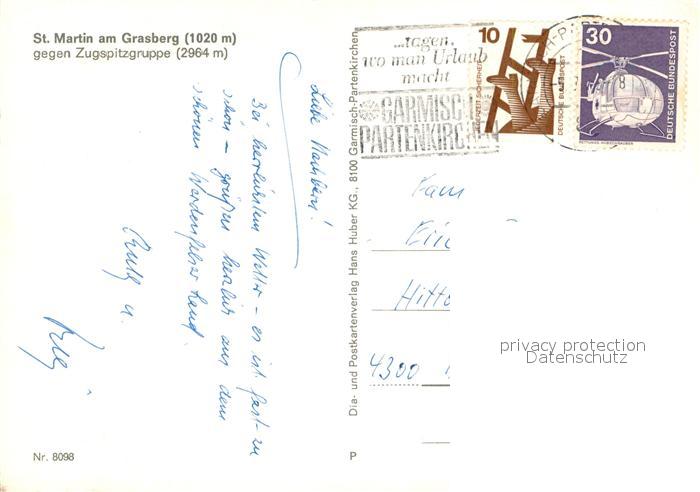 St. Martin am Grasberg (1020 m)
gegen Zugspitzgruppe (2964 m)
Liebe Nachbarn!
Bei herrlichstem Wetter - es ist fast zu
schön - grüßen herzlich aus dem
schönen Werdenfelser Land
Ruth u.
Nr. 8098
Dia- und Postkartenverlag Hans Huber KG., 8100 Garmisch-Partenkirchen
P
...tagen,
wo man Urlaub
macht
GARMISCH
PARTENKIRCHEN
10
JEDERZEIT SICHERHEIT
DEUTSCHE BUNDESPOST
30
DEUTSCHE BUNDESPOST
RETTUNGS-HUBSCHRAUBER
Fam
Hitto
4300
privacy protection
Datenschutz